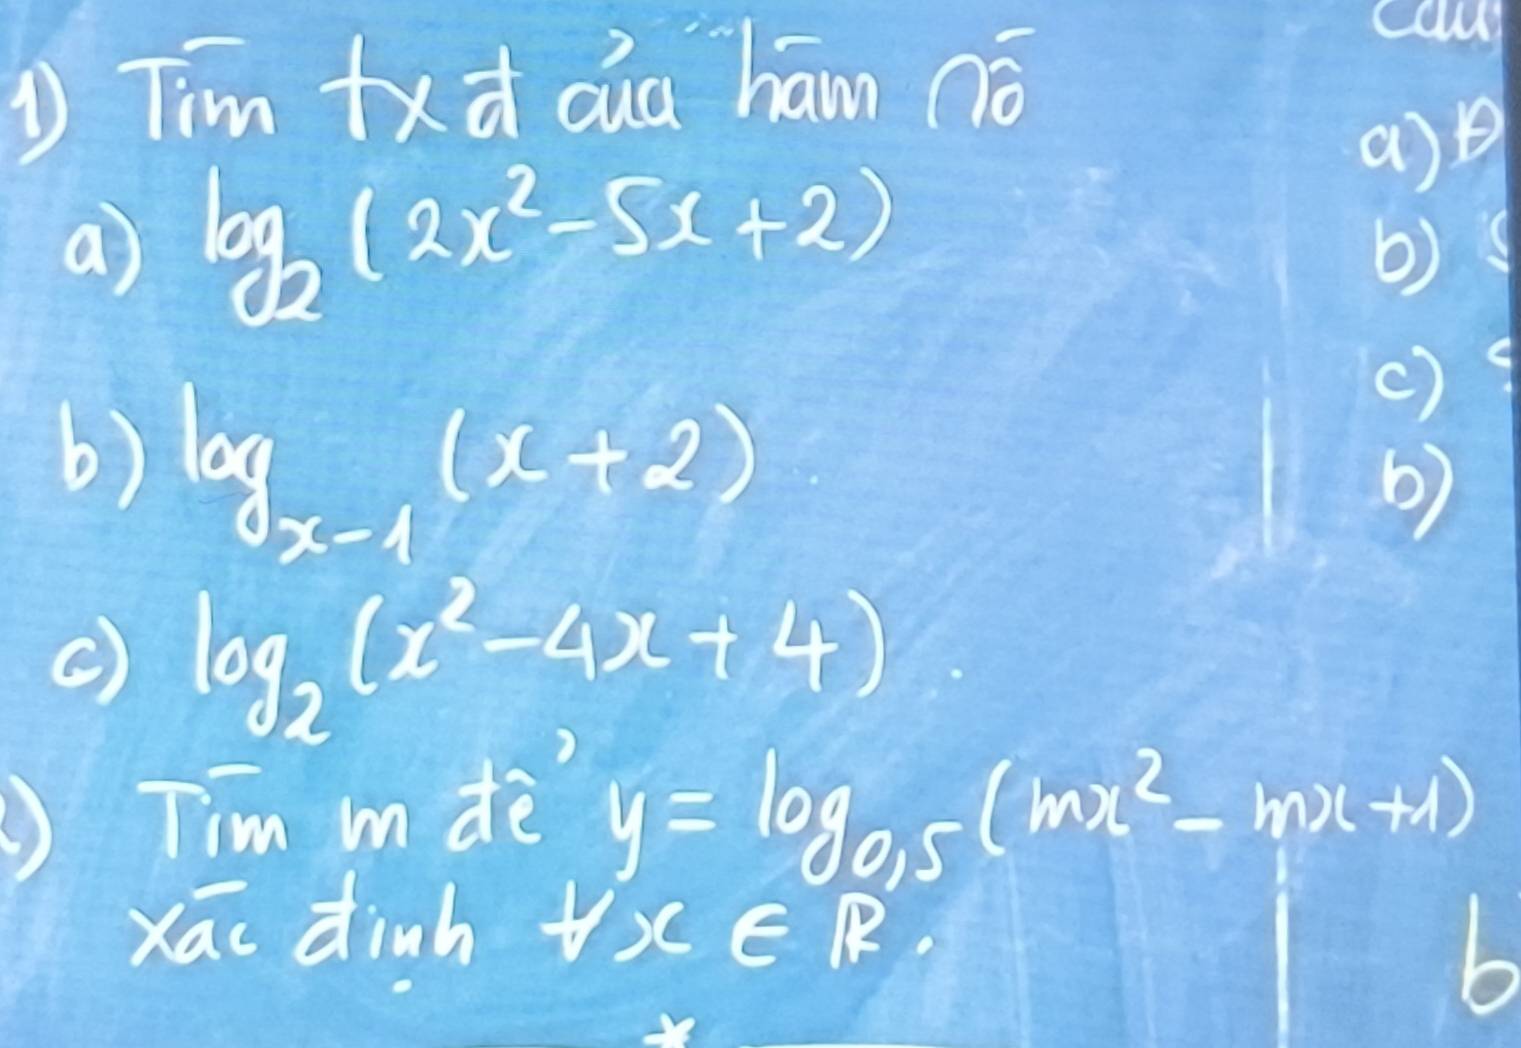 1) Tìm txđ của hàm số
a) log₂ (2x² - 5x + 2)
b) logₓ₋₁ (x + 2)
c) log₂ (x² - 4x + 4)
Tìm m để y = log₀,₅ (mx² - mx + 1)
xác định ∀x ∈ ℝ.
*
a)
b)
c)
b)
b